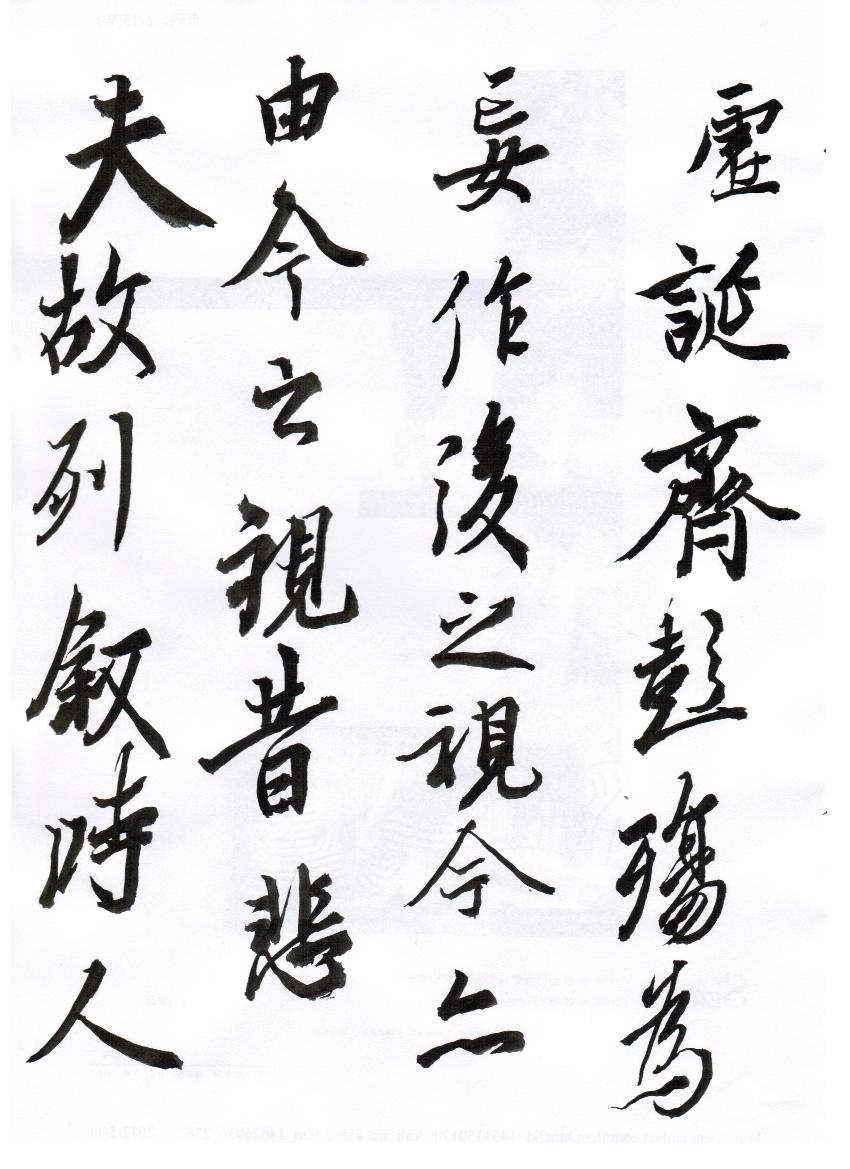 虛誕齊彭殤為
妄作後之視今亦
由今之視昔悲
夫故列叙時人